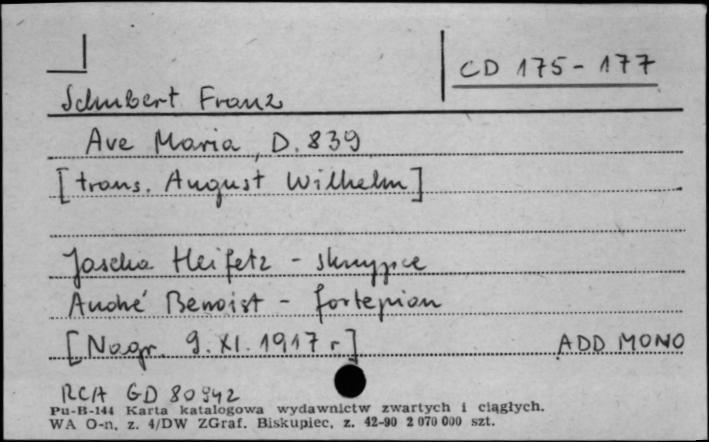 CD 175-177
Schubert Franz
Ave Maria, D. 839
[trans. August Wilhelm]
Jascha Heifetz - skrzypce
André Benoist - fortepian
[Nagr. 9. XI. 1917 r]
ADD MONO
RCA GD 80942
Pu-B-144 Karta katalogowa wydawnictw zwartych i ciągłych.
WA O-n, z. 4/DW ZGraf. Biskupiec, z. 42-90 2 070 000 szt.